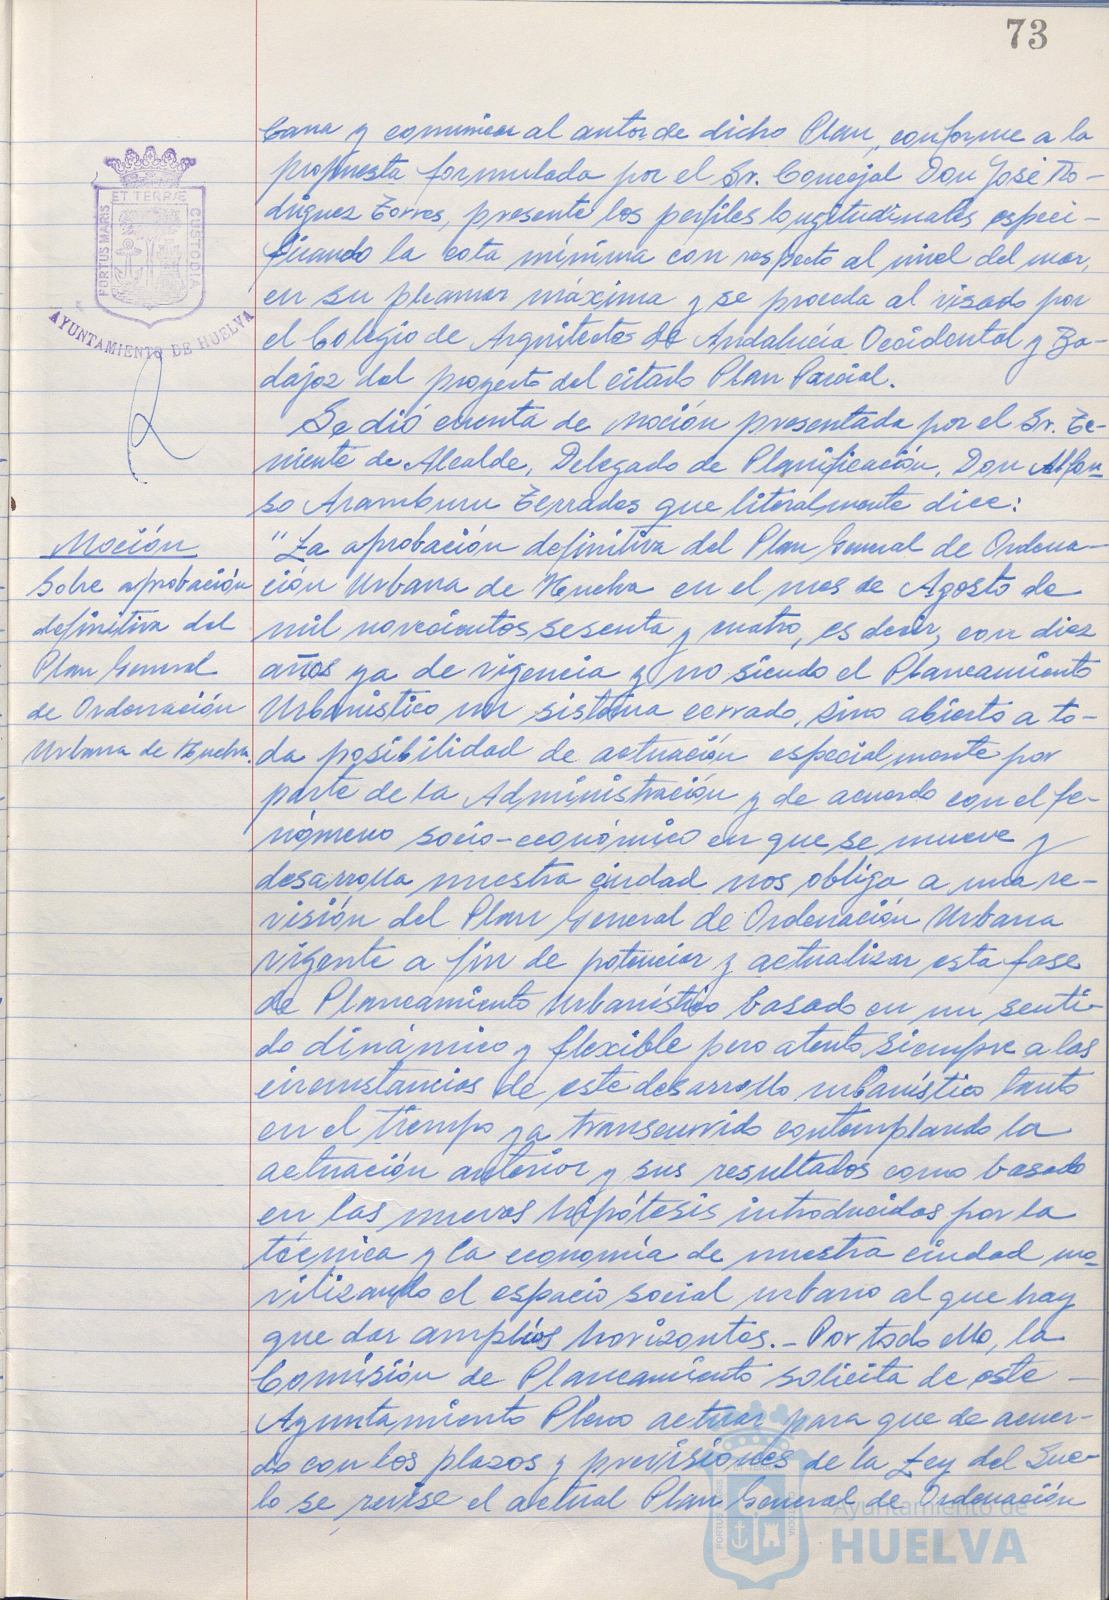 73
bana y comunicar al autor de dicho Plan, conforme a la
propuesta formulada por el Sr. Concejal Don José Ro-
dríguez Torres, presente los perfiles longitudinales especi-
ficando la cota mínima con respecto al nivel del mar,
en su pleamar máxima y se proceda al visado por
el Colegio de Arquitectos de Andalucía Occidental y Ba-
dajoz del proyecto del citado Plan Parcial.
Se dió cuenta de moción presentada por el Sr. Te-
niente de Alcalde, Delegado de Planificación, Don Alfon-
so Aramburu Terrades que literalmente dice:
"La aprobación definitiva del Plan General de Ordena-
ción Urbana de Huelva en el mes de Agosto de
mil novecientos sesenta y cuatro, es decir, con diez
años ya de vigencia y no siendo el Planeamiento
Urbanístico un sistema cerrado, sino abierto a to-
da posibilidad de actuación especialmente por
parte de la Administración y de acuerdo con el fe-
nómeno socio-económico en que se mueve y
desarrolla nuestra ciudad nos obliga a una re-
visión del Plan General de Ordenación Urbana
vigente a fin de potenciar y actualizar esta fase
de Planeamiento Urbanístico basado en un senti-
do dinámico y flexible pero atento siempre a las
circunstancias de este desarrollo urbanístico tanto
en el tiempo ya transcurrido contemplando la
actuación anterior y sus resultados como basado
en las nuevas hipótesis introducidas por la
técnica y la economía de nuestra ciudad mo-
vilizando el espacio social urbano al que hay
que dar amplios horizontes.- Por todo ello, la
Comisión de Planeamiento solicita de este -
Ayuntamiento Pleno actuar para que de acuer-
do con los plazos y previsiones de la Ley del Sue-
lo se revise el actual Plan General de Ordenación
PORTUS MARIS
ET TERRÆ
CUSTODIA
AYUNTAMIENTO DE HUELVA
Moción
Sobre aprobación
definitiva del
Plan General
de Ordenación
Urbana de Huelva.
Ayuntamiento de
HUELVA